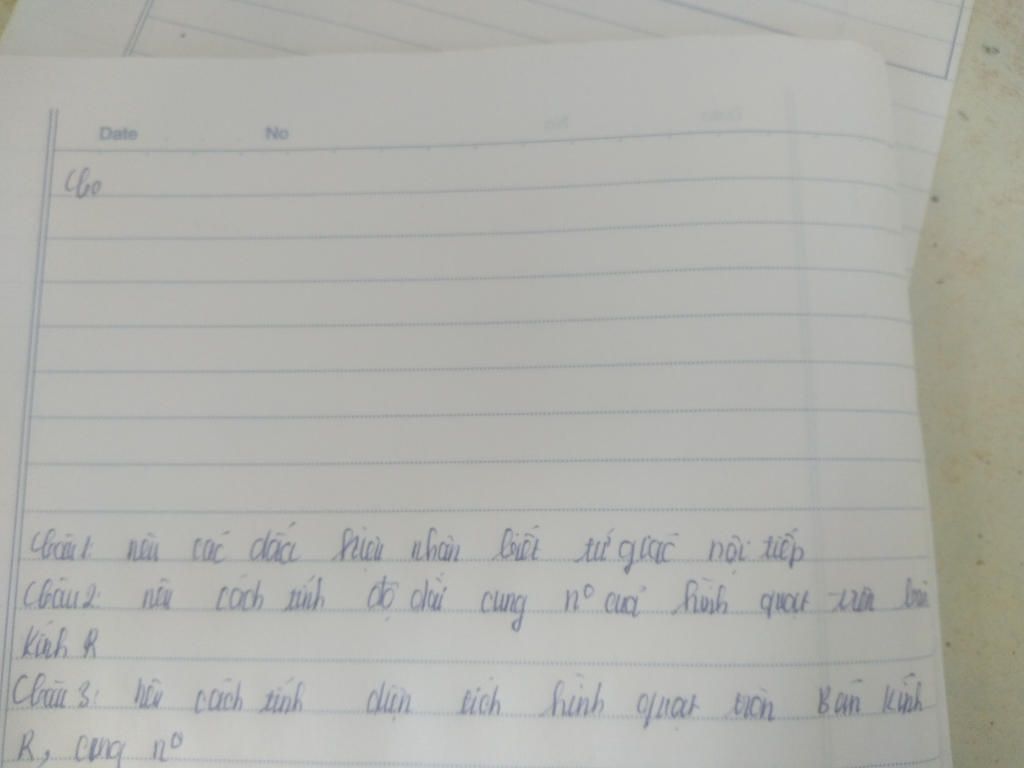 Date No
Câu 1: nêu các dấu hiệu nhận biết tứ giác nội tiếp
Câu 2: nêu cách tính độ dài cung n° của hình quạt tròn bán
kính R
Câu 3: nêu cách tính diện tích hình quạt tròn Bán kính
R, cung n°